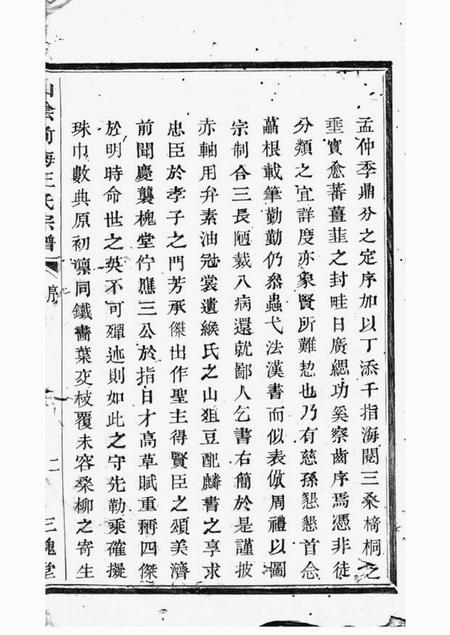 孟仲季鼎分之定序加以丁添千指海閱三桑椅桐之
垂實愈蕃薑韮之封畦日廣緦功奚察齒序焉憑非徒
分類之宜詳度亦象賢所難恝也乃有慈孫懇懇首念
萬根載筆勤勤仍叅蟲弋法漢書而似表倣周禮以圖
宗制合三長陋戴八病還就鄙人乞書右簡於是謹披
赤軸用弁素油冠裳遺緱氏之山狙豆配麟書之享求
忠臣於孝子之門芳承傑出作聖主得賢臣之頌美濟
前聞慶襲槐堂佇應三公於指日才高草賦重稱四傑
於明時命世之英不可殫述則如此之守先勒乘確擬
珠巾數典原初凛同鐵書葉交枝覆未容桑柳之寄生
山陰前梅王氏宗譜
序
二
三槐堂